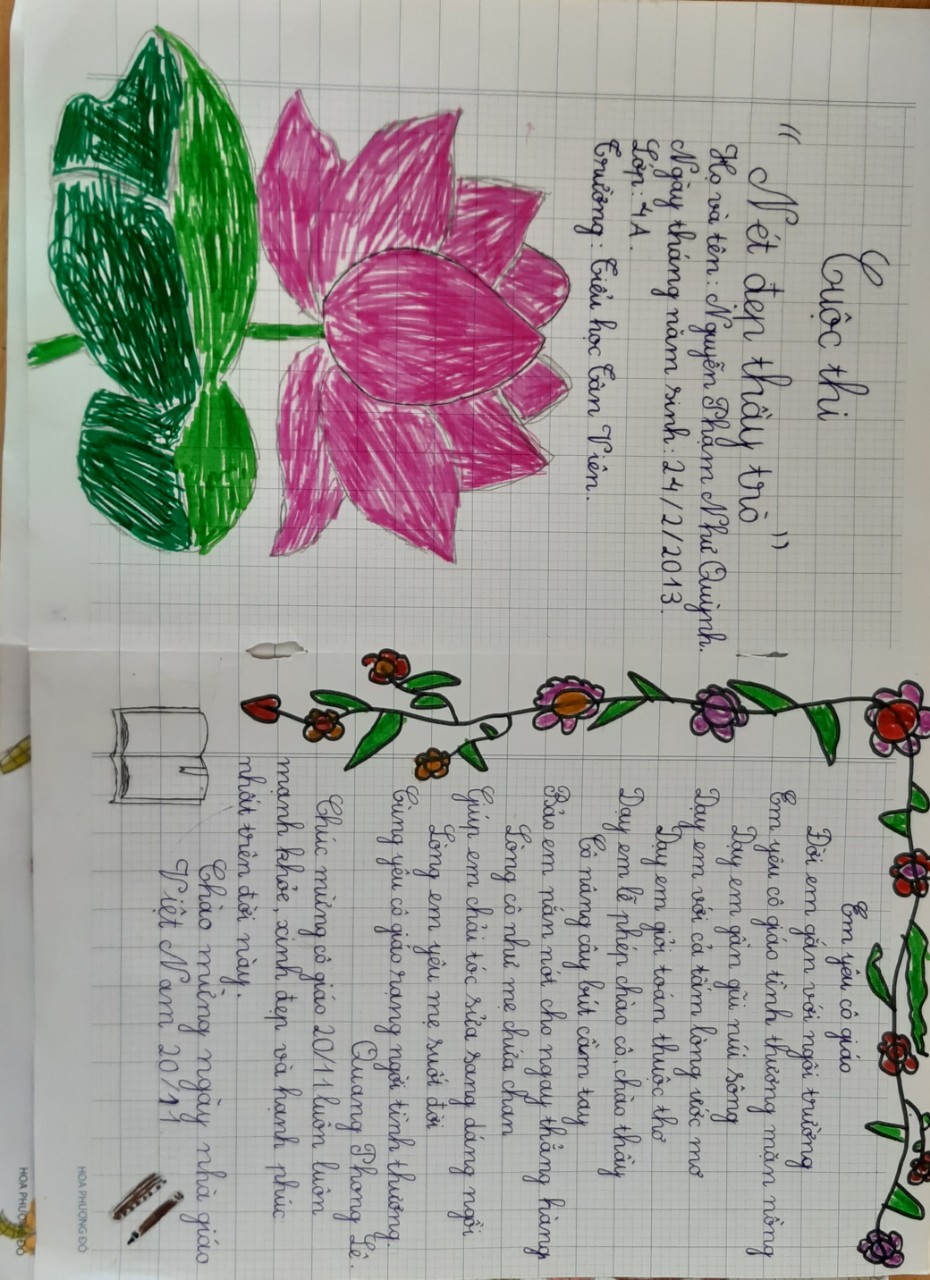 Cuộc thi
" Nét đẹp thầy trò "
Họ và tên: Nguyễn Phạm Như Quỳnh.
Ngày tháng năm sinh: 24/2/2013.
Lớp: 4A.
Trường: Tiểu học Tản Viên.
Em yêu cô giáo
Đời em gắn với ngôi trường
Em yêu cô giáo tình thương mặn nồng
Dạy em gần gũi núi sông
Dạy em với cả tấm lòng ước mơ
Dạy em giỏi toán thuộc thơ
Dạy em lễ phép chào cô, chào thầy
Cô nâng cây bút cầm tay
Bảo em nắn nót cho ngay thẳng hàng
Lòng cô như mẹ chứa chan
Giúp em chải tóc sửa sang dáng ngồi
Lòng em yêu mẹ suốt đời
Cũng yêu cô giáo rạng ngời tình thương.
Quang Phong Lê.
Chúc mừng cô giáo 20/11 luôn luôn
mạnh khỏe, xinh đẹp và hạnh phúc
nhất trên đời này.
Chào mừng ngày nhà giáo
Việt Nam 20/11
HOA PHƯỢNG ĐỎ
HOA PHƯỢNG ĐỎ